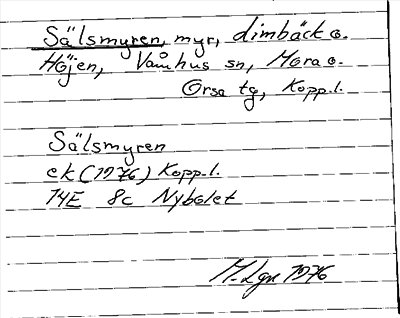 Sälsmyren, myr, Limbäck o.
Höjen, Våmhus sn, Mora o.
Orsa tg, Kopp.l.
Sälsmyren
ek (1976) Kopp.l.
14E 8c Nybolet
M. Lgn 1976